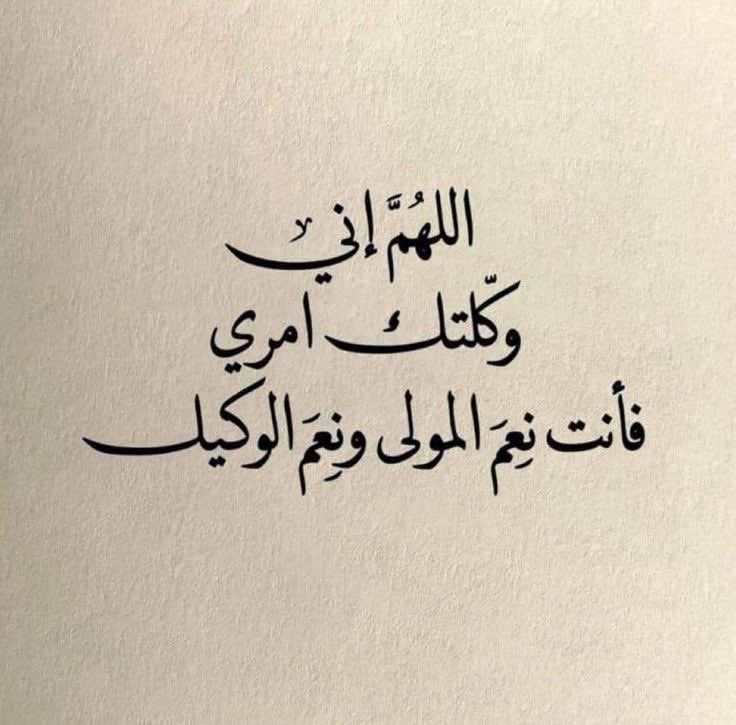 اللهُمَّ إني
وكّلتك امري
فأنت نِعمَ المولى ونِعمَ الوكيل